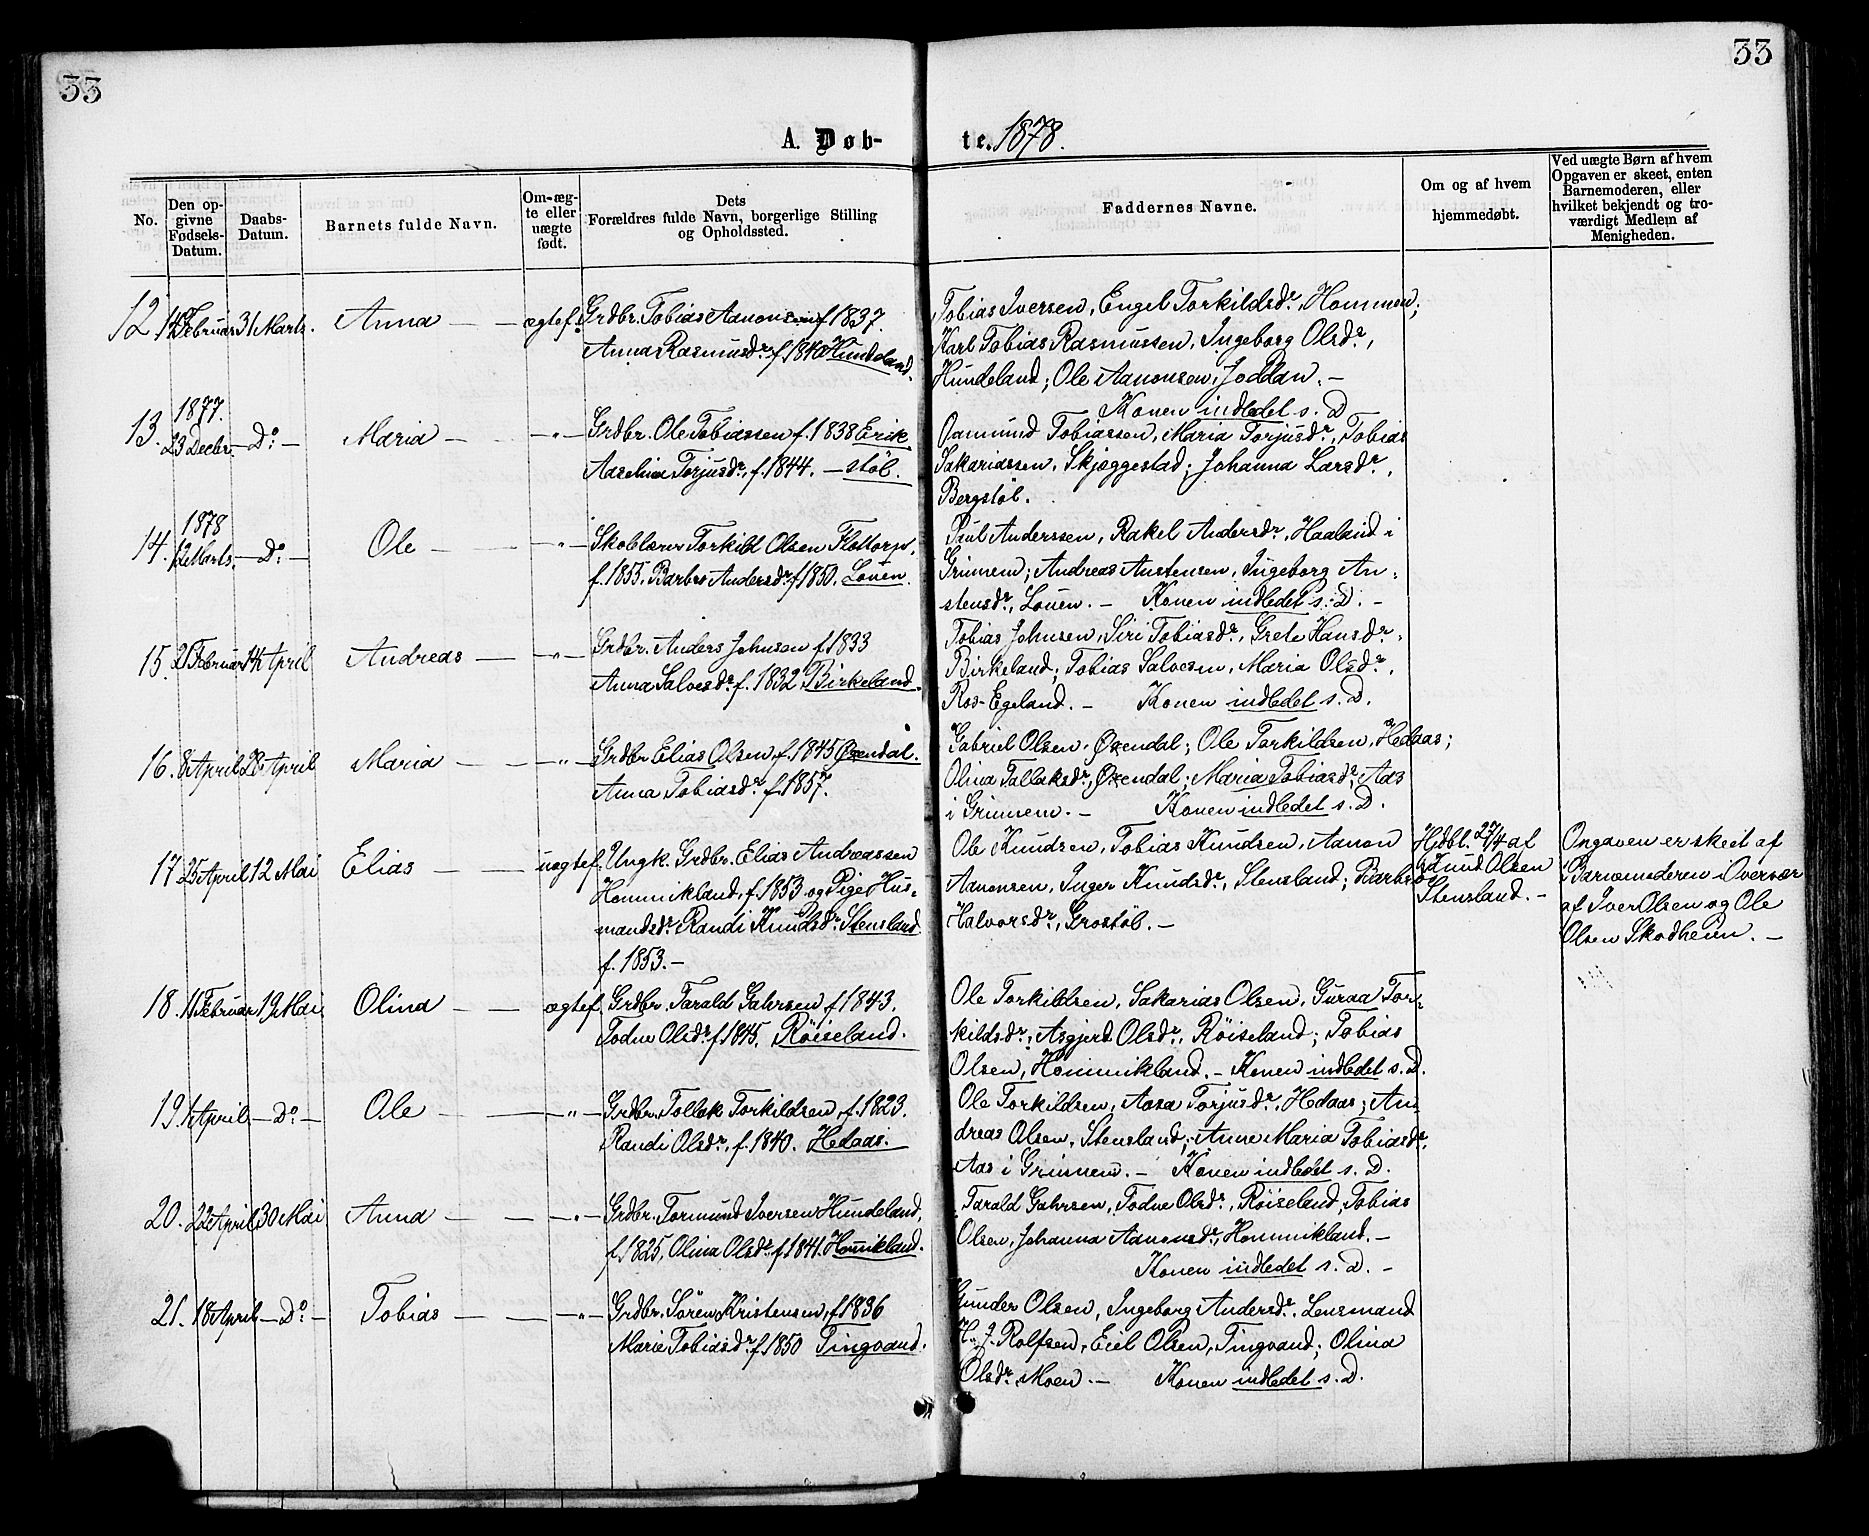 33
33
A. Døb- te. 1878.
No.
Den op-
givne
Fødsels-
Datum.
Daabs-
Datum.
Barnets fulde Navn.
Om-æg-
te eller
uægte
født.
Dets
Forældres fulde Navn, borgerlige Stilling
og Opholdssted.
Faddernes Navne.
Om og af hvem
hjemmedøbt.
Ved uægte Børn af hvem
Opgaven er skeet, enten
Barnemoderen, eller
hvilket bekjendt og tro-
værdigt Medlem af
Menigheden.
12. Februar 31 Marts. Anna — — ægtef. Grdbr. Tobias Aanonsen f. 1837.
Anna Rasmusdr. f. 1840 Hundeland.
Tobias Iversen, Engel Torkildsdr., Hommen;
Karl Tobias Rasmussen, Ingeborg Olsdr.,
Hundeland; Ole Aanonsen, Joddan. —
Konen indledet s. D.
13. 1877.
23 Decbr. — Do — Maria — — „ — Grdbr. Ole Tobiassen f. 1838 Erik
Aaselina Torjusdr., f. 1844. — støl.
Osmund Tobiassen, Maria Torjusdr., Tobias
Sakariassen, Skjæggestad; Johanna Larsdr.,
Bergstøl.
14. 1878
12 Marts. — Do — Ole — — „ — Skolelærer Torkild Olsen Flottorp,
f. 1855. Barbro Andersdr. f. 1850. Louen.
Paul Anderssen, Rakel Andersdr., Haaland i
Grimem; Andreas Austensen, Ingeborg Au-
stensdr., Louen. — Konen indledet s. D. —
15. 21 Februar 14 April Andreas — — „ — Grdbr. Anders Johnsen f. 1833
Anna Salvesdr. f. 1832 Birkeland.
Tobias Johnsen, Siri Tobiasdr., Grete Hansdr.,
Birkeland; Tobias Salvesen, Maria Olsdr.,
Ros-Egeland. — Konen indledet s. D.
16. 8 April 28 April Maria — — „ — Grdbr. Elias Olsen f. 1845 Øxendal.
Anna Tobiasdr. f. 1857.
Gabriel Olsen, Øxendal; Ole Torkildsen, Hedaas;
Olina Tallaksdr., Øxendal; Maria Tobiasdr., Aas
i Grimem. — Konen indledet s. D.
17. 25 April 12 Mai Elias — — uægtef. Ungk. Grdbr. Elias Andreassen
Hommikland, f. 1853 og Pige Hus-
mandsdr. Randi Knudsdr. Stensland
f. 1853. —
Ole Knudsen, Tobias Knudsen, Aanon
Aanonsen, Inger Knudsdr., Stensland; Barbro
Halvorsdr., Grostøl. —
Hjdbt. 27/4 af
Knud Olsen
Stensland. —
Opgaven er skeet af
Barnemoderen i Overvær
af Iver Olsen og Ole
Olsen Skodheim. —
18. 11 Februar 19 Mai Olina — — ægtef. Grdbr. Tarald Gahrsen f. 1843.
Todne Olsdr. f. 1845. Röiseland.
Ole Torkildsen, Sakarias Olsen, Guraa Tor-
kildsdr., Asgjerd Olsdr., Röiseland; Tobias
Olsen, Hommikland. — Konen indledet s. D.
19. 1 April — Do — Ole — — „ — Grdbr. Tollak Torkildsen, f. 1823.
Randi Olsdr., f. 1840. Hedaas.
Ole Torkildsen, Aasa Torjusdr., Hedaas; An-
dreas Olsen, Stensland; Anne Maria Tobiasdr.,
Aas i Grimem. — Konen indledet s. D.
20. 22 April 30 Mai Anna — — „ — Grdbr. Tormund Iversen Hundeland,
f. 1825, Olina Olsdr. f. 1841. Homikland.
Tarald Gahrsen, Todne Olsdr., Röiseland, Tobias
Olsen, Johanna Aanonsdr., Hommikland. —
Konen indledet s. D. —
21. 18 April — Do — Tobias — — „ — Grdbr. Sören Kristensen, f. 1836
Marie Tobiasdr. f. 1850 Tingvand.
Gunder Olsen, Ingeborg Andersdr., Lensmand
H. J. Rolfsen, Eiel Olsen, Tingvand; Olina
Olsdr. Moen. — Konen indledet s. D.